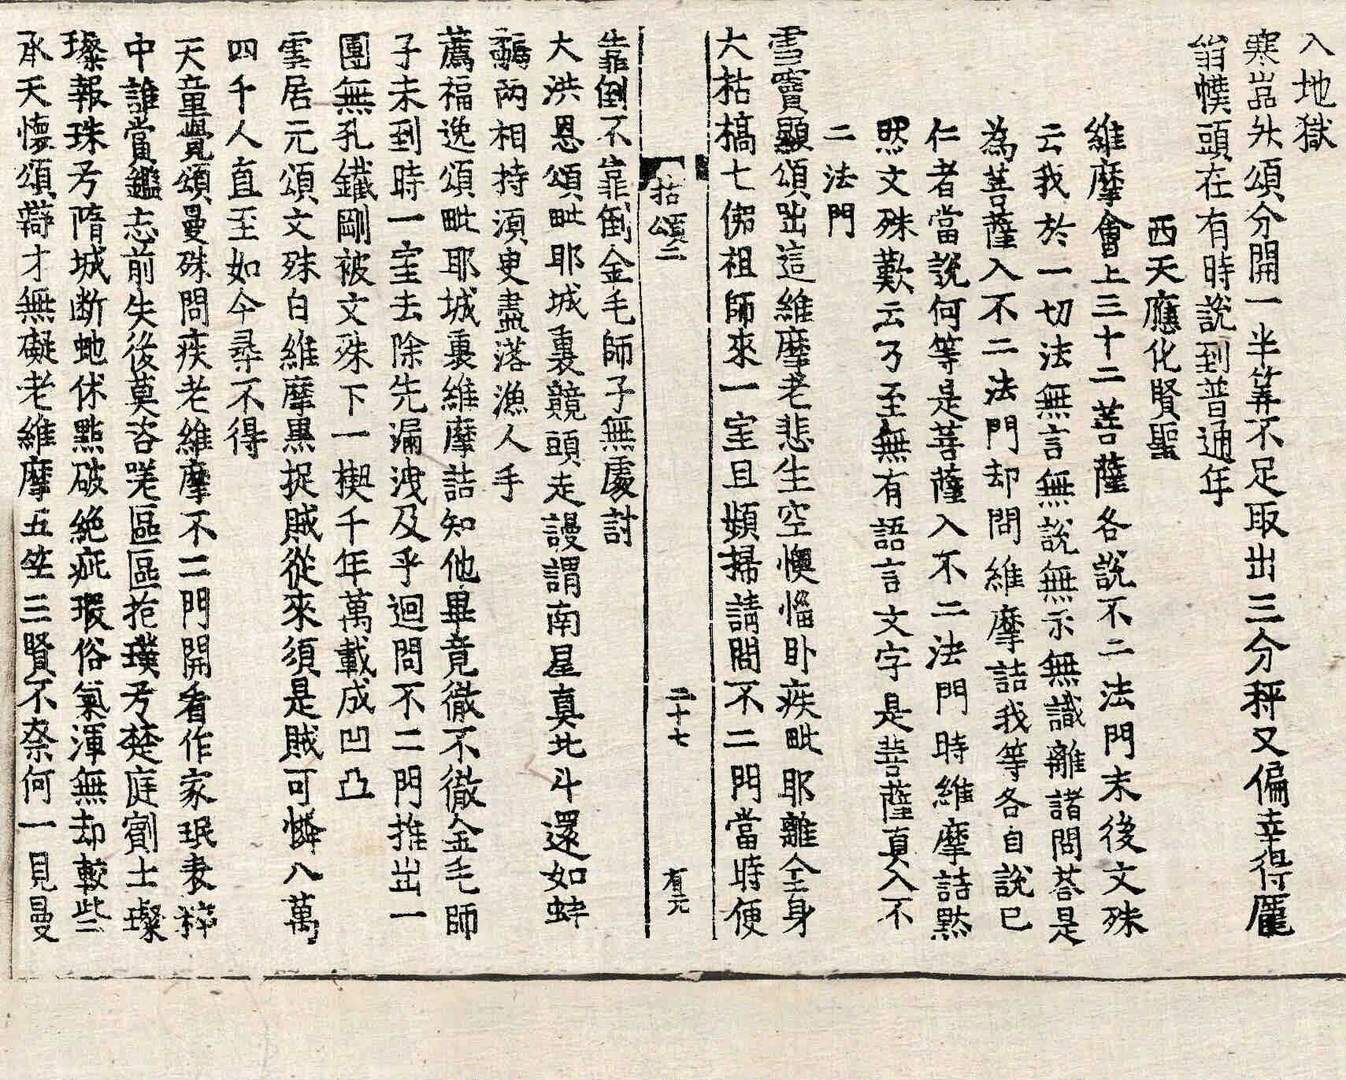 入地獄
寒嵓升頌分開一半筭不足取出三分秤又偏幸得龐
翁幞頭在有時說到普通年
西天應化賢聖
維摩會上三十二菩薩各說不二法門末後文殊
云我於一切法無言無說無示無識離諸問荅是
為菩薩入不二法門却問維摩詰我等各自說已
仁者當說何等是菩薩入不二法門時維摩詰黙
然文殊歎云乃至無有語言文字是菩薩真入不
二法門
雪竇顯頌咄這維摩老悲生空懊惱卧疾毗耶離全身
大枯槁七佛祖師來一室且頻掃請問不二門當時便
拈頌二 二十七 有元
靠倒不靠倒金毛師子無處討
大洪恩頌毗耶城裏競頭走謾謂南星真北斗還如蚌
鷸兩相持須臾盡落漁人手
薦福逸頌毗耶城裏維摩詰知他畢竟徹不徹金毛師
子未到時一室去除先漏洩及乎迴問不二門推出一
團無孔鐵剛被文殊下一楔千年萬載成凹凸
雲居元頌文殊白維摩黒捉賊從來須是賊可憐八萬
四千人直至如今尋不得
天童覺頌曼殊問疾老維摩不二門開看作家珉表粹
中誰賞鑑忘前失後莫咨嗟區區抱璞兮楚庭臏士璨
璨報珠兮隋城断虵休點破絕疵瑕俗氣渾無却較些
承天懷頌辯才無礙老維摩五竺三賢不柰何一見曼